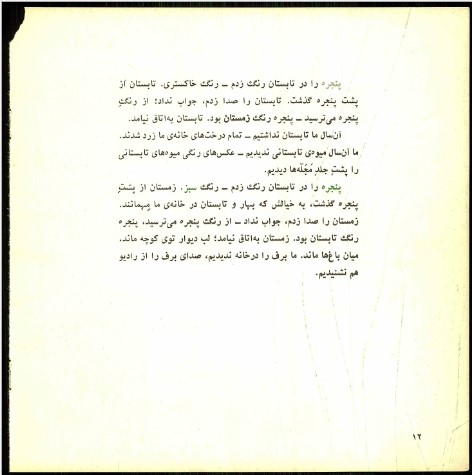 پنجره را در تابستان رنگ زدم ــ رنگ خاکستری. تابستان از
پشت پنجره گذشت. تابستان را صدا زدم، جواب نداد؛ از رنگ
پنجره می‌ترسید ــ پنجره رنگ زمستان بود. تابستان به‌اتاق نیامد.
آن‌سال ما تابستان نداشتیم ــ تمام درخت‌های خانه‌ی ما زرد شدند.
ما آن‌سال میوه‌ی تابستانی ندیدیم ــ عکس‌های رنگی میوه‌های تابستانی
را پشتِ جلدِ مَجَلّه‌ها دیدیم.
پنجره را در تابستان رنگ زدم ــ رنگ سبز. زمستان از پشتِ
پنجره گذشت، به خیالش که بهار و تابستان در خانه‌ی ما مهمانند.
زمستان را صدا زدم، جواب نداد ــ از رنگ پنجره می‌ترسید، پنجره
رنگ تابستان بود. زمستان به‌اتاق نیامد؛ لب دیوار توی کوچه ماند.
میان باغ‌ها ماند. ما برف را درخانه ندیدیم، صدای برف را از رادیو
هم نشنیدیم.
۱۲